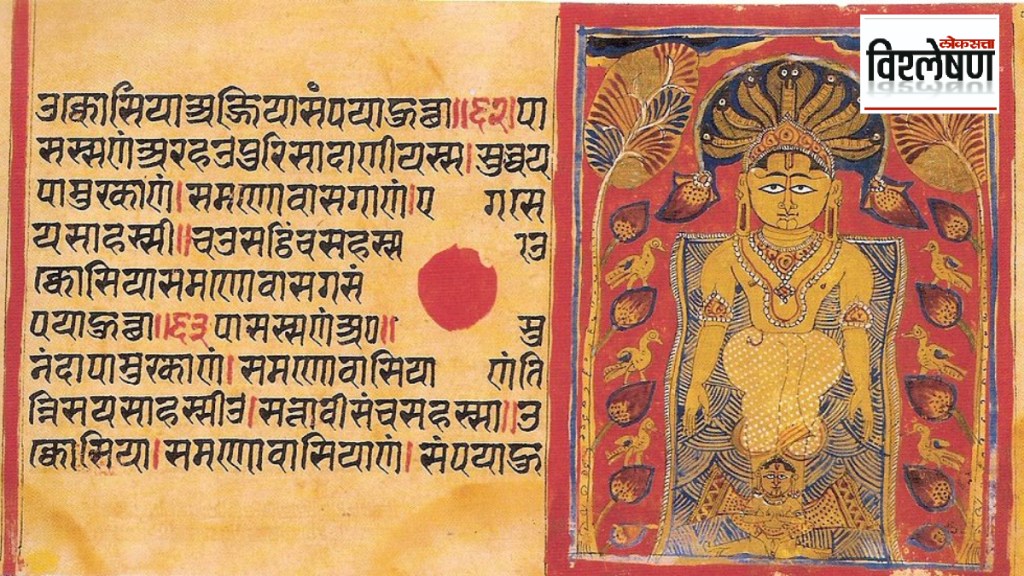 उक्कोसिया अज्जियासंपया हुत्था॥६२॥पा
सस्सणं अरहउ पुरिसादाणीयस्स।सुव्वय
पामुरकाणं।समणोवासगाणं।ए गासस
यसाहस्सी॥चउसट्ठिंचसहस्स ाउ
क्कोसियासमणोवासगसं
पयाहुत्था॥६३॥पासस्सणं अर॥ सु
नंदापामुरकाणं।समणोवासिया णंति
न्निसयसाहस्सीउ।सत्तावीसंचसहस्सा॥उ
क्कोसिया।समणोवासियाणं।संपयाहु
लोकसत्ता
विश्लेषण